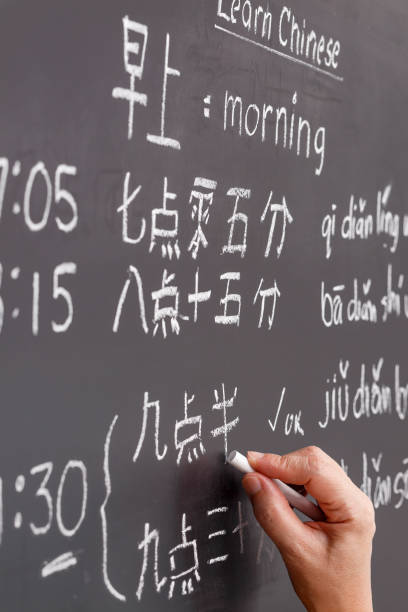 Learn Chinese
早上 : morning
7:05 七点零五分 qī diǎn líng
:15 八点十五分 bā diǎn
九点半 ✓ OK jiǔ diǎn
:30 九点三十 diǎn